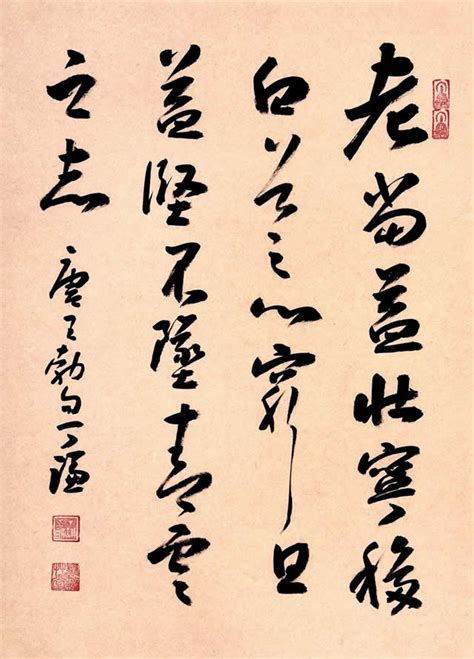 老當益壯寧移
白首之心窮且
益堅不墜青雲
之志
唐王勃句丁謙